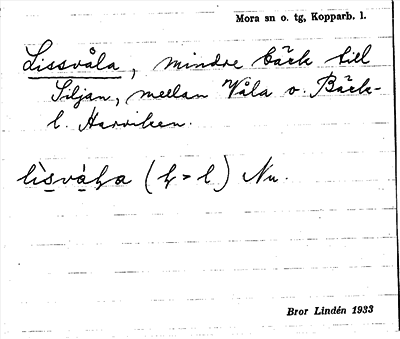 Mora sn o. tg, Kopparb. l.
Lissvåla, mindre bäck till
Siljan, mellan Våla o. Bäck-
l. Harviken.
lìsvàɫa (ɫ > l) Nu.
Bror Lindén 1933